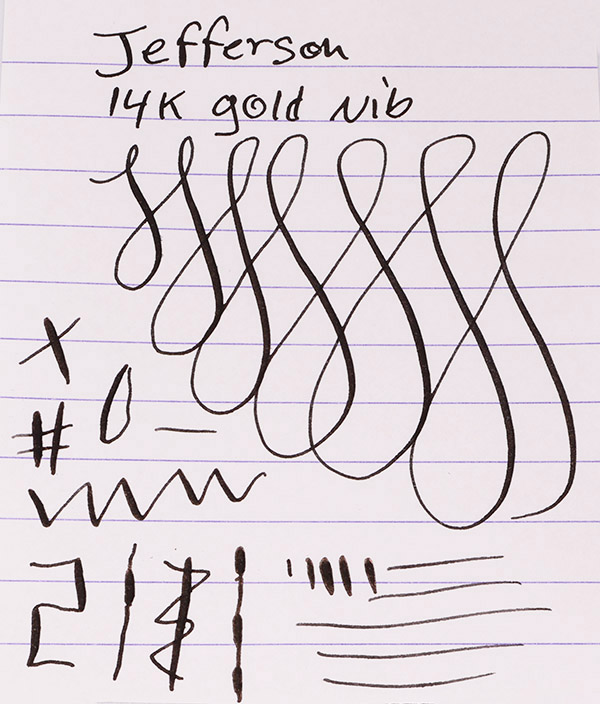 Jefferson
14K gold nib